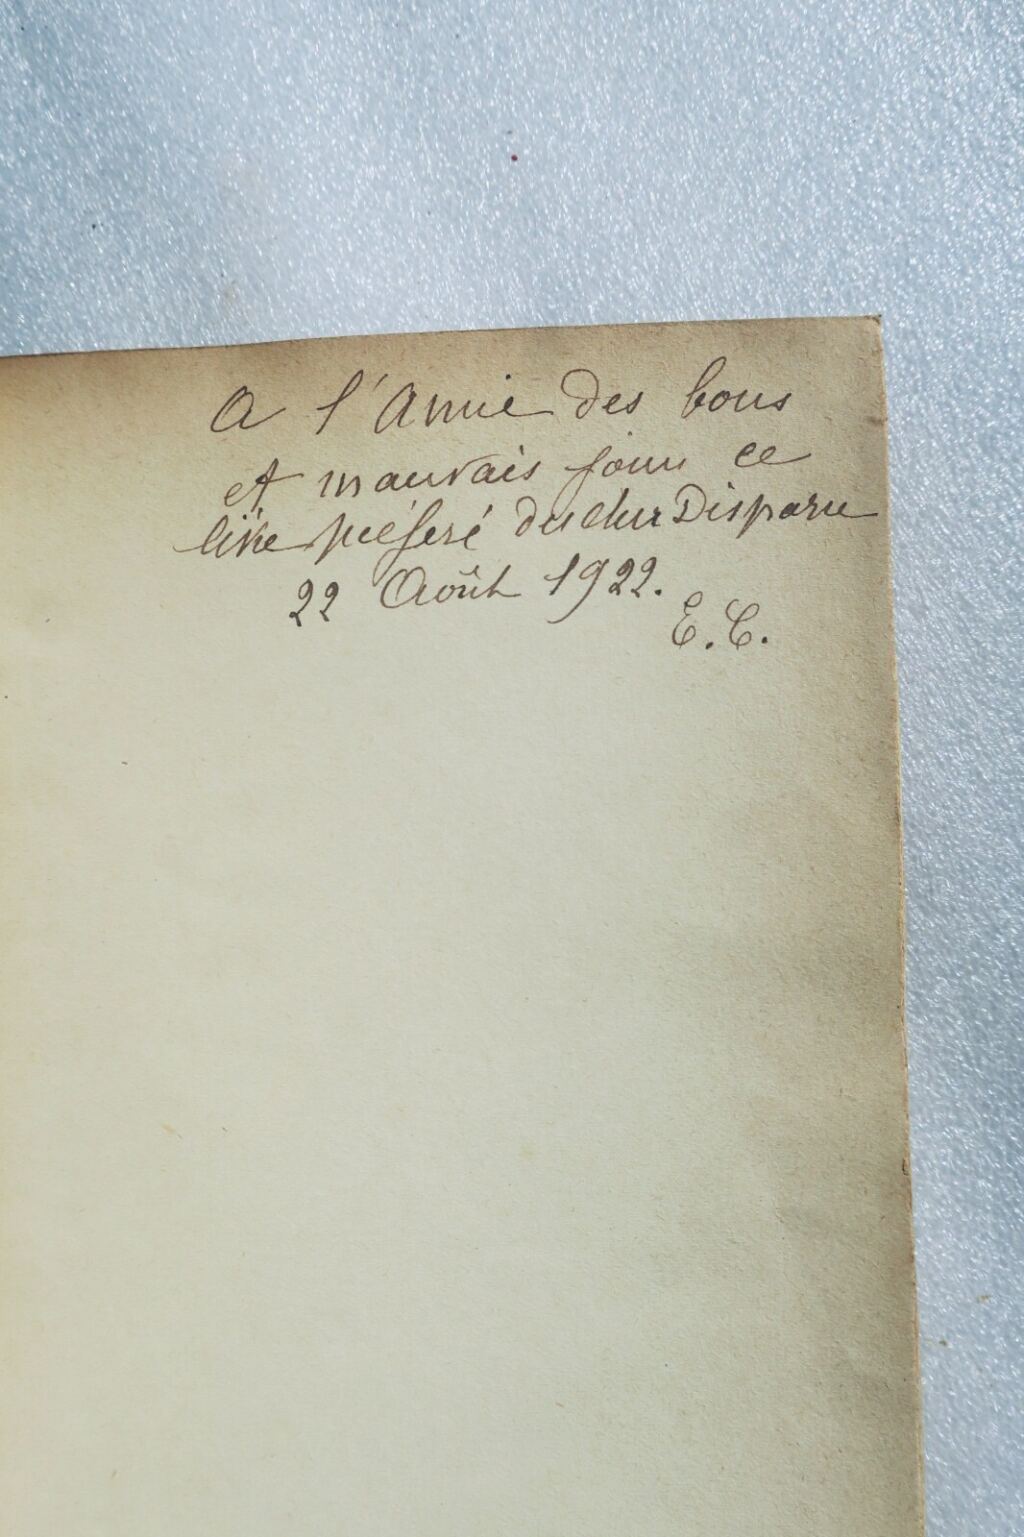 A l'Amie des bons
et mauvais jours ce
livre préféré du cher Disparu
22 Août 1922.
E. C.